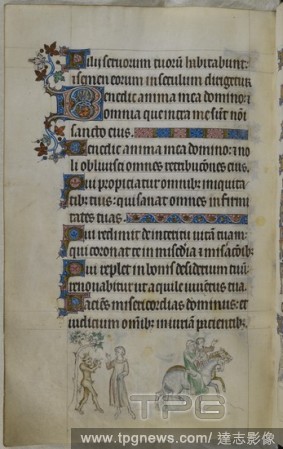 Filii servorum tuorum habitabunt:
et semen eorum in seculum dirigetur
Benedic anima mea domino: et
omnia que intra me sunt noı̄
sancto eius.
Benedic anima mea domino: et no
li oblivisci omnes retribuc̄ones eius.
Qui propiciatur omnib; iniquita
tib; tuis: qui sanat omnes infirmi
tates tuas.
Qui redimit de interitu vitam tuam:
qui coronat te in mis̄edia et mis̄acōib;
Qui replet in bonis desiderium tuū:
renovabitur ut aquile iuventus tua.
Faciens misericordias dominus: et
iudicium omīb; iniuriam pacientib;
TPG
www.tpgnews.com/ 達志影像